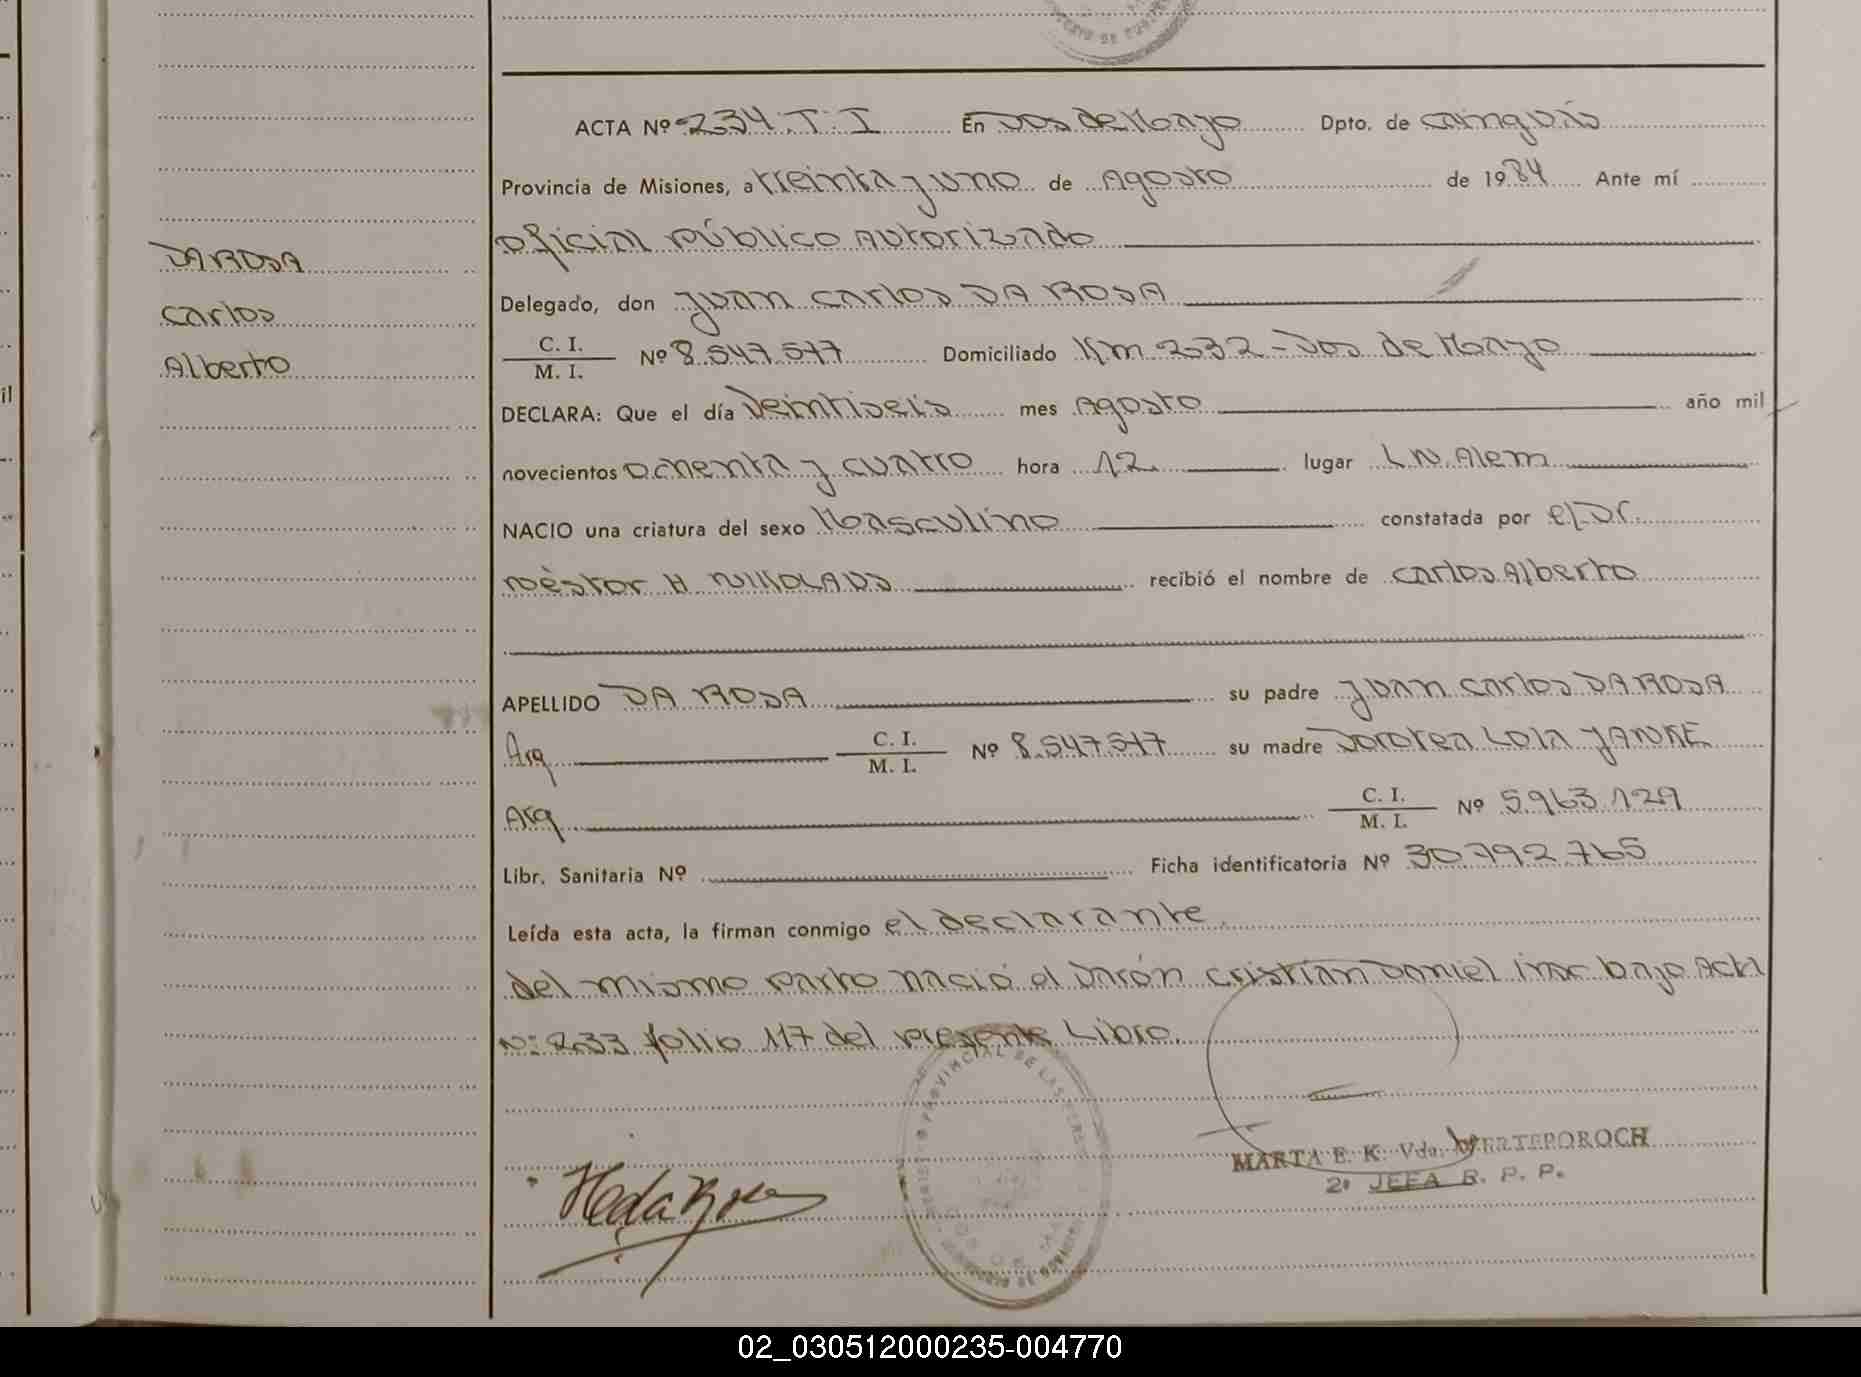 ACTA Nº 234. T. I En Dos de Mayo Dpto. de Cainguás
Provincia de Misiones, a treinta y uno de Agosto de 1984 Ante mí
oficial público autorizado
DA ROSA
Delegado, don Juan Carlos DA ROSA
Carlos
C. I.
M. I. Nº 8.547.517 Domiciliado Km 232 - Dos de Mayo
Alberto
DECLARA: Que el día veintiseis mes Agosto año mil
novecientos ochenta y cuatro hora 12. lugar L.N. Alem
NACIO una criatura del sexo Masculino constatada por el Dr.
Néstor H recibió el nombre de Carlos Alberto
APELLIDO DA ROSA su padre Juan Carlos DA ROSA
Arg C. I.
M. I. Nº 8.547.517 su madre Dorotea Lola
Arg C. I.
M. I. Nº 5.963.129
Libr. Sanitaria Nº Ficha identificatoria Nº 30.792.765
Leída esta acta, la firman conmigo el declarante.
del mismo parto nació el varón Cristian Daniel insc bajo Acta
Nº 233 folio 117 del presente Libro.
MARTA E. K. Vda.
2º JEFA R. P. P.
02_030512000235-004770